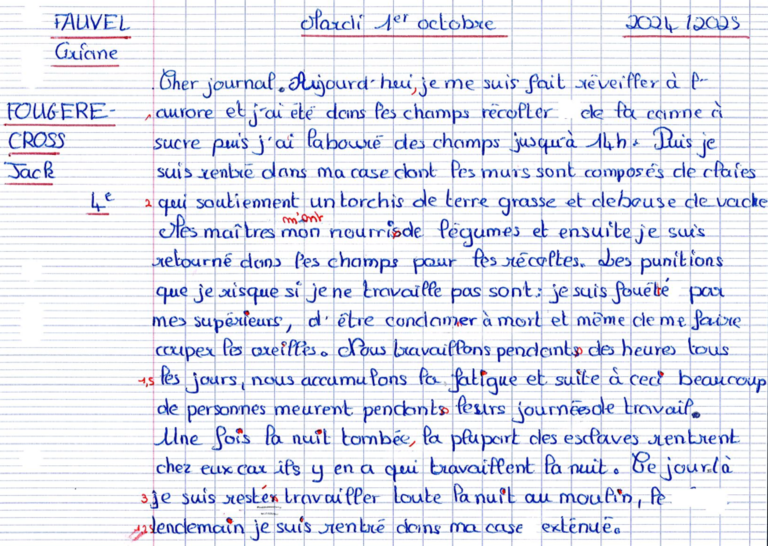 FAUVEL Mardi 1er octobre 2024/2025
Axiane
Cher journal. Aujourd'hui, je me suis fait réveiller à l'
FOUGERE- aurore et j'ai été dans les champs récolter de la canne à
CROSS sucre puis j'ai labouré des champs jusqu'à 14h. Puis je
Jack suis rentré dans ma case dont les murs sont composés de claies
4e 2 qui soutiennent un torchis de terre grasse et de bouse de vache
m'ont
Mes maîtres mon nourris de légumes et ensuite je suis
retourné dans les champs pour les récoltes. Les punitions
que je risque si je ne travaille pas sont: je suis fouété par
mes supérieurs, d'être condamer à mort et même de me faire
couper les oreilles. Nous travaillons pendants des heures tous
-1,5 les jours, nous accumulons la fatigue et suite à ceci beaucoup
de personnes meurent pendants leurs journées de travail.
Une fois la nuit tombée, la plupart des esclaves rentrent
chez eux car ils y en a qui travaillent la nuit. Ce jour là
3 je suis restér travailler toute la nuit au moulin, le
lendemain je suis rentré dans ma case exténué.